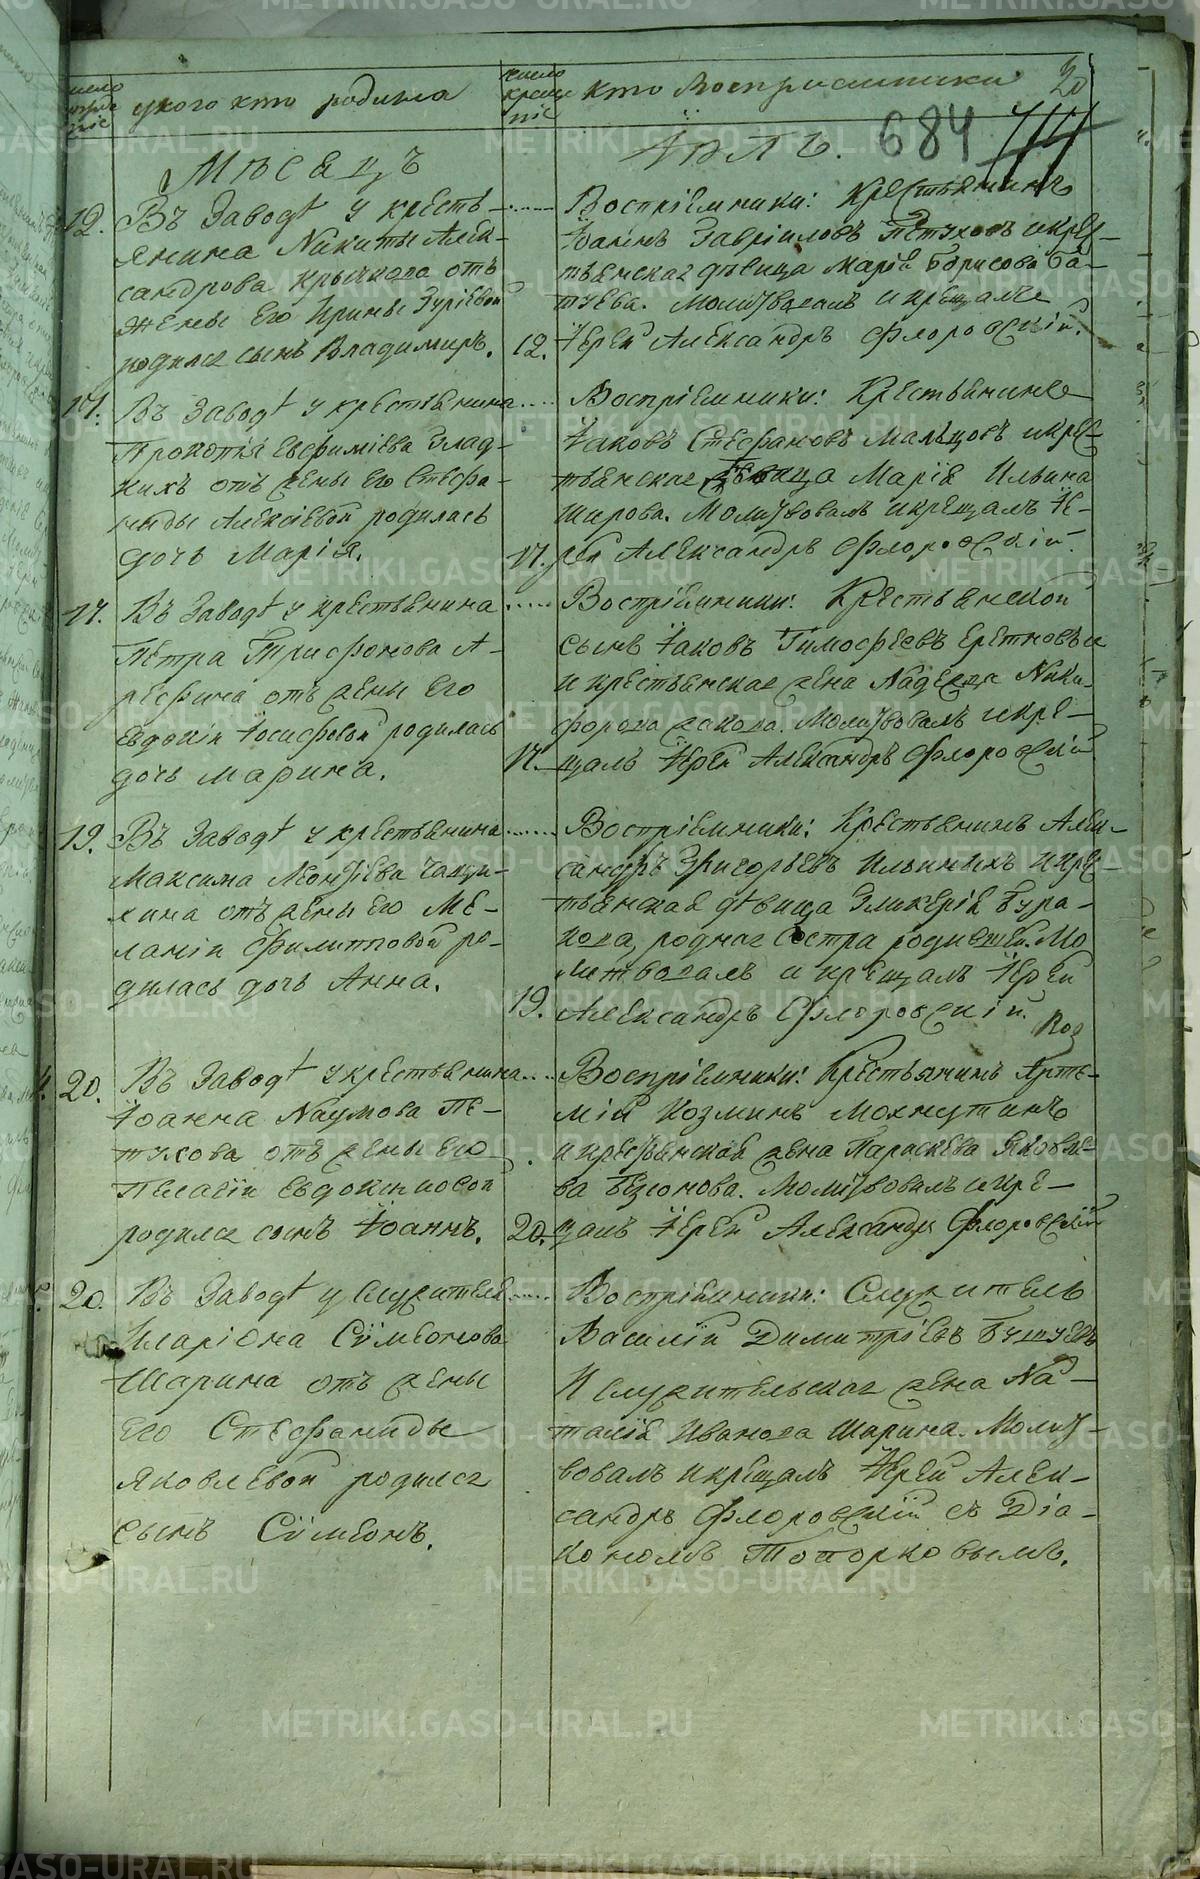 число рожде ніе
у кого кто родился
число креще ніе
кто Восприемники
20
684
Мѣсяцъ
Іюль.
12.
Въ Заводѣ у кресть-
янина Никиты Алек-
сандрова отъ
жены его Ирины
родился сынъ Владимиръ.
Воспріемники: Крестьянинъ
Іоаннъ Гавріиловъ Пѣтуховъ и крес-
тьянская дѣвица Марія Борисова
Молитвовалъ и крещалъ
12.
Іерей Александръ Флоровскій.
17.
Въ Заводѣ у крестьянина
Прокопія Евфиміева Глад-
кихъ отъ жены его Стефа-
ниды Алексіевой родилась
дочь Марія.
Воспріемники: Крестьянинъ
Іаковъ Стефановъ Мальцовъ и крес-
тьянская дѣвица Марія Ильина
Широва. Молитвовалъ и крещалъ Іе-
17.
рей Александръ Флоровскій.
17.
Въ Заводѣ у крестьянина
Петра Трифонова А-
рефина отъ жены его
Евдокіи Іосифовой родилась
дочь Марина.
Воспріемники: Крестьянской
сынъ Іаковъ Тимофеевъ
и крестьянская жена Надежда Ники-
форова Молитвовалъ и кре-
17.
щалъ Іерей Александръ Флоровскій
19.
Въ Заводѣ у крестьянина
Максима Чащи-
хина отъ жены его Ме-
ланіи Филипповой ро-
дилась дочь Анна.
Воспріемники: Крестьянинъ Алек-
сандръ Григорьевъ Ильиныхъ и крес-
тьянская дѣвица Гликерія Бура-
кова, родная сестра Мо
литвовалъ и крещалъ Іерей
19.
Александръ Флоровскій.
20.
Въ Заводѣ у крестьянина
Іоанна Наумова Пе-
тухова отъ жены его
Пелагіи Евдокимовой
родился сынъ Іоаннъ.
Воспріемники: Крестьянинъ Арте-
мій Козминъ Мохнутинъ
и крестьянская жена Параскева Яковле-
ва Бизюнова. Молитвовалъ и кре-
20.
щалъ Іерей Александръ Флоровскій
20.
Въ Заводѣ у служителя
Иларіона Сѵмеонова
Шарина отъ жены
его Стефаниды
Яковлевой родился
сынъ Сѵмеонъ.
Воспріемники: Служитель
Василій Димитріевъ Бушуевъ
И служительская жена На-
талія Иванова Шарина. Молит-
вовалъ и крещалъ Іерей Алек-
сандръ Флоровскій съ Діа-
кономъ Топорковымъ.
METRIKI.GASO-URAL.RU